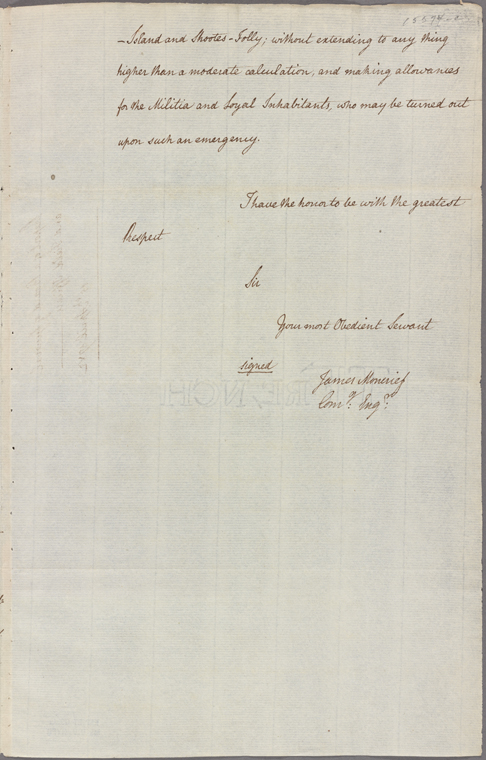 -Island and Shootes-Folly; without extending to any thing
higher than a moderate calculation, and making allowances
for the Militia and Loyal Inhabitants, who may be turned out
upon such an emergency.
I have the honor to be with the greatest
Respect
Sir
Your most Obedient Servant
signed
James Moncrief
Comg. Engr.